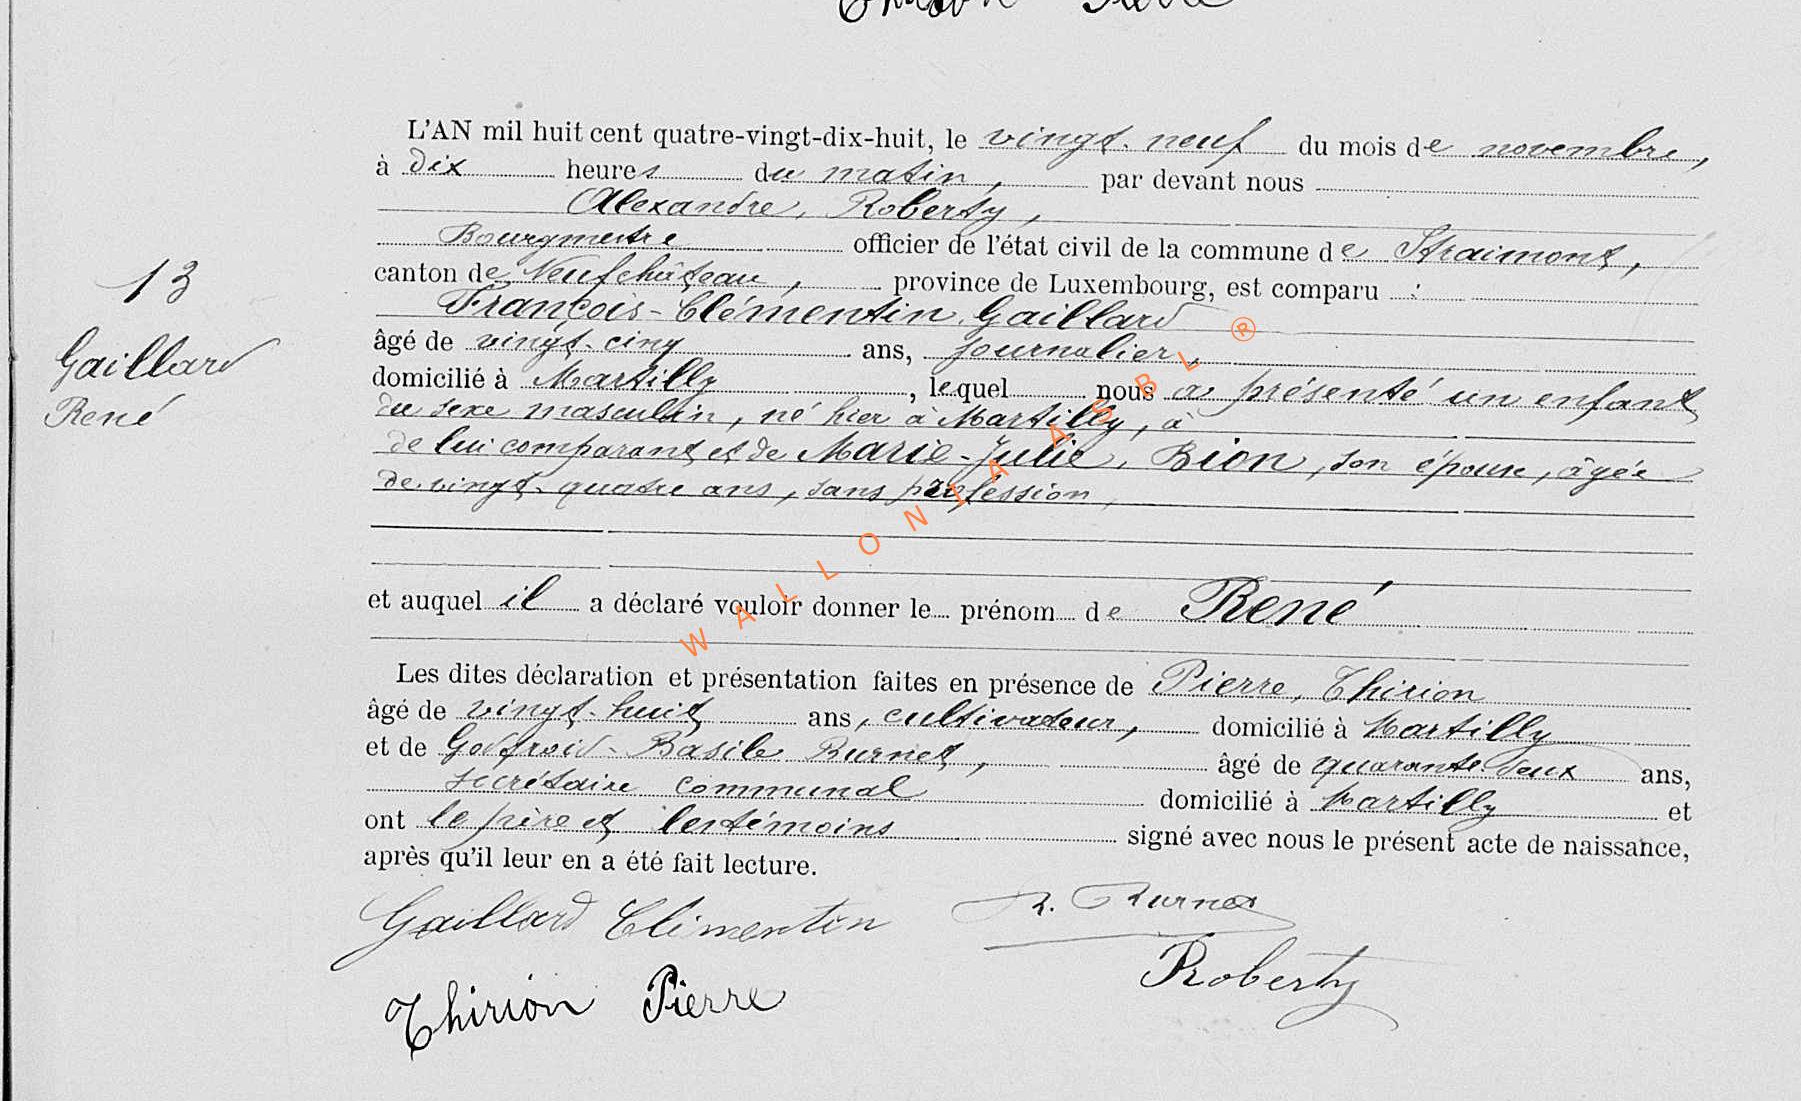 Thirion Pierre
L'AN mil huit cent quatre-vingt-dix-huit, le vingt-neuf du mois de novembre,
à dix heures du matin, par devant nous
Alexandre, Roberty,
Bourgmestre officier de l'état civil de la commune de Straimont,
canton de Neufchâteau, province de Luxembourg, est comparu :
13
François-Clémentin, Gaillard
âgé de vingt-cinq ans, journalier,
Gaillard
René
domicilié à Martilly, lequel nous a présenté un enfant
du sexe masculin, né hier à Martilly, à
de lui comparant et de Marie-Julie, Bion, son épouse, âgée
de vingt-quatre ans, sans profession,
et auquel il a déclaré vouloir donner le prénom de René
Les dites déclaration et présentation faites en présence de Pierre, Thirion
âgé de vingt-huit ans, cultivateur, domicilié à Martilly
et de Godfroid-Basile Burnet, âgé de quarante-deux ans,
secrétaire communal domicilié à Martilly et
ont le père et les témoins signé avec nous le présent acte de naissance,
après qu'il leur en a été fait lecture.
Gaillard Clémentin B. Burnet
Roberty
Thirion Pierre
WALLONIA ASBL ®